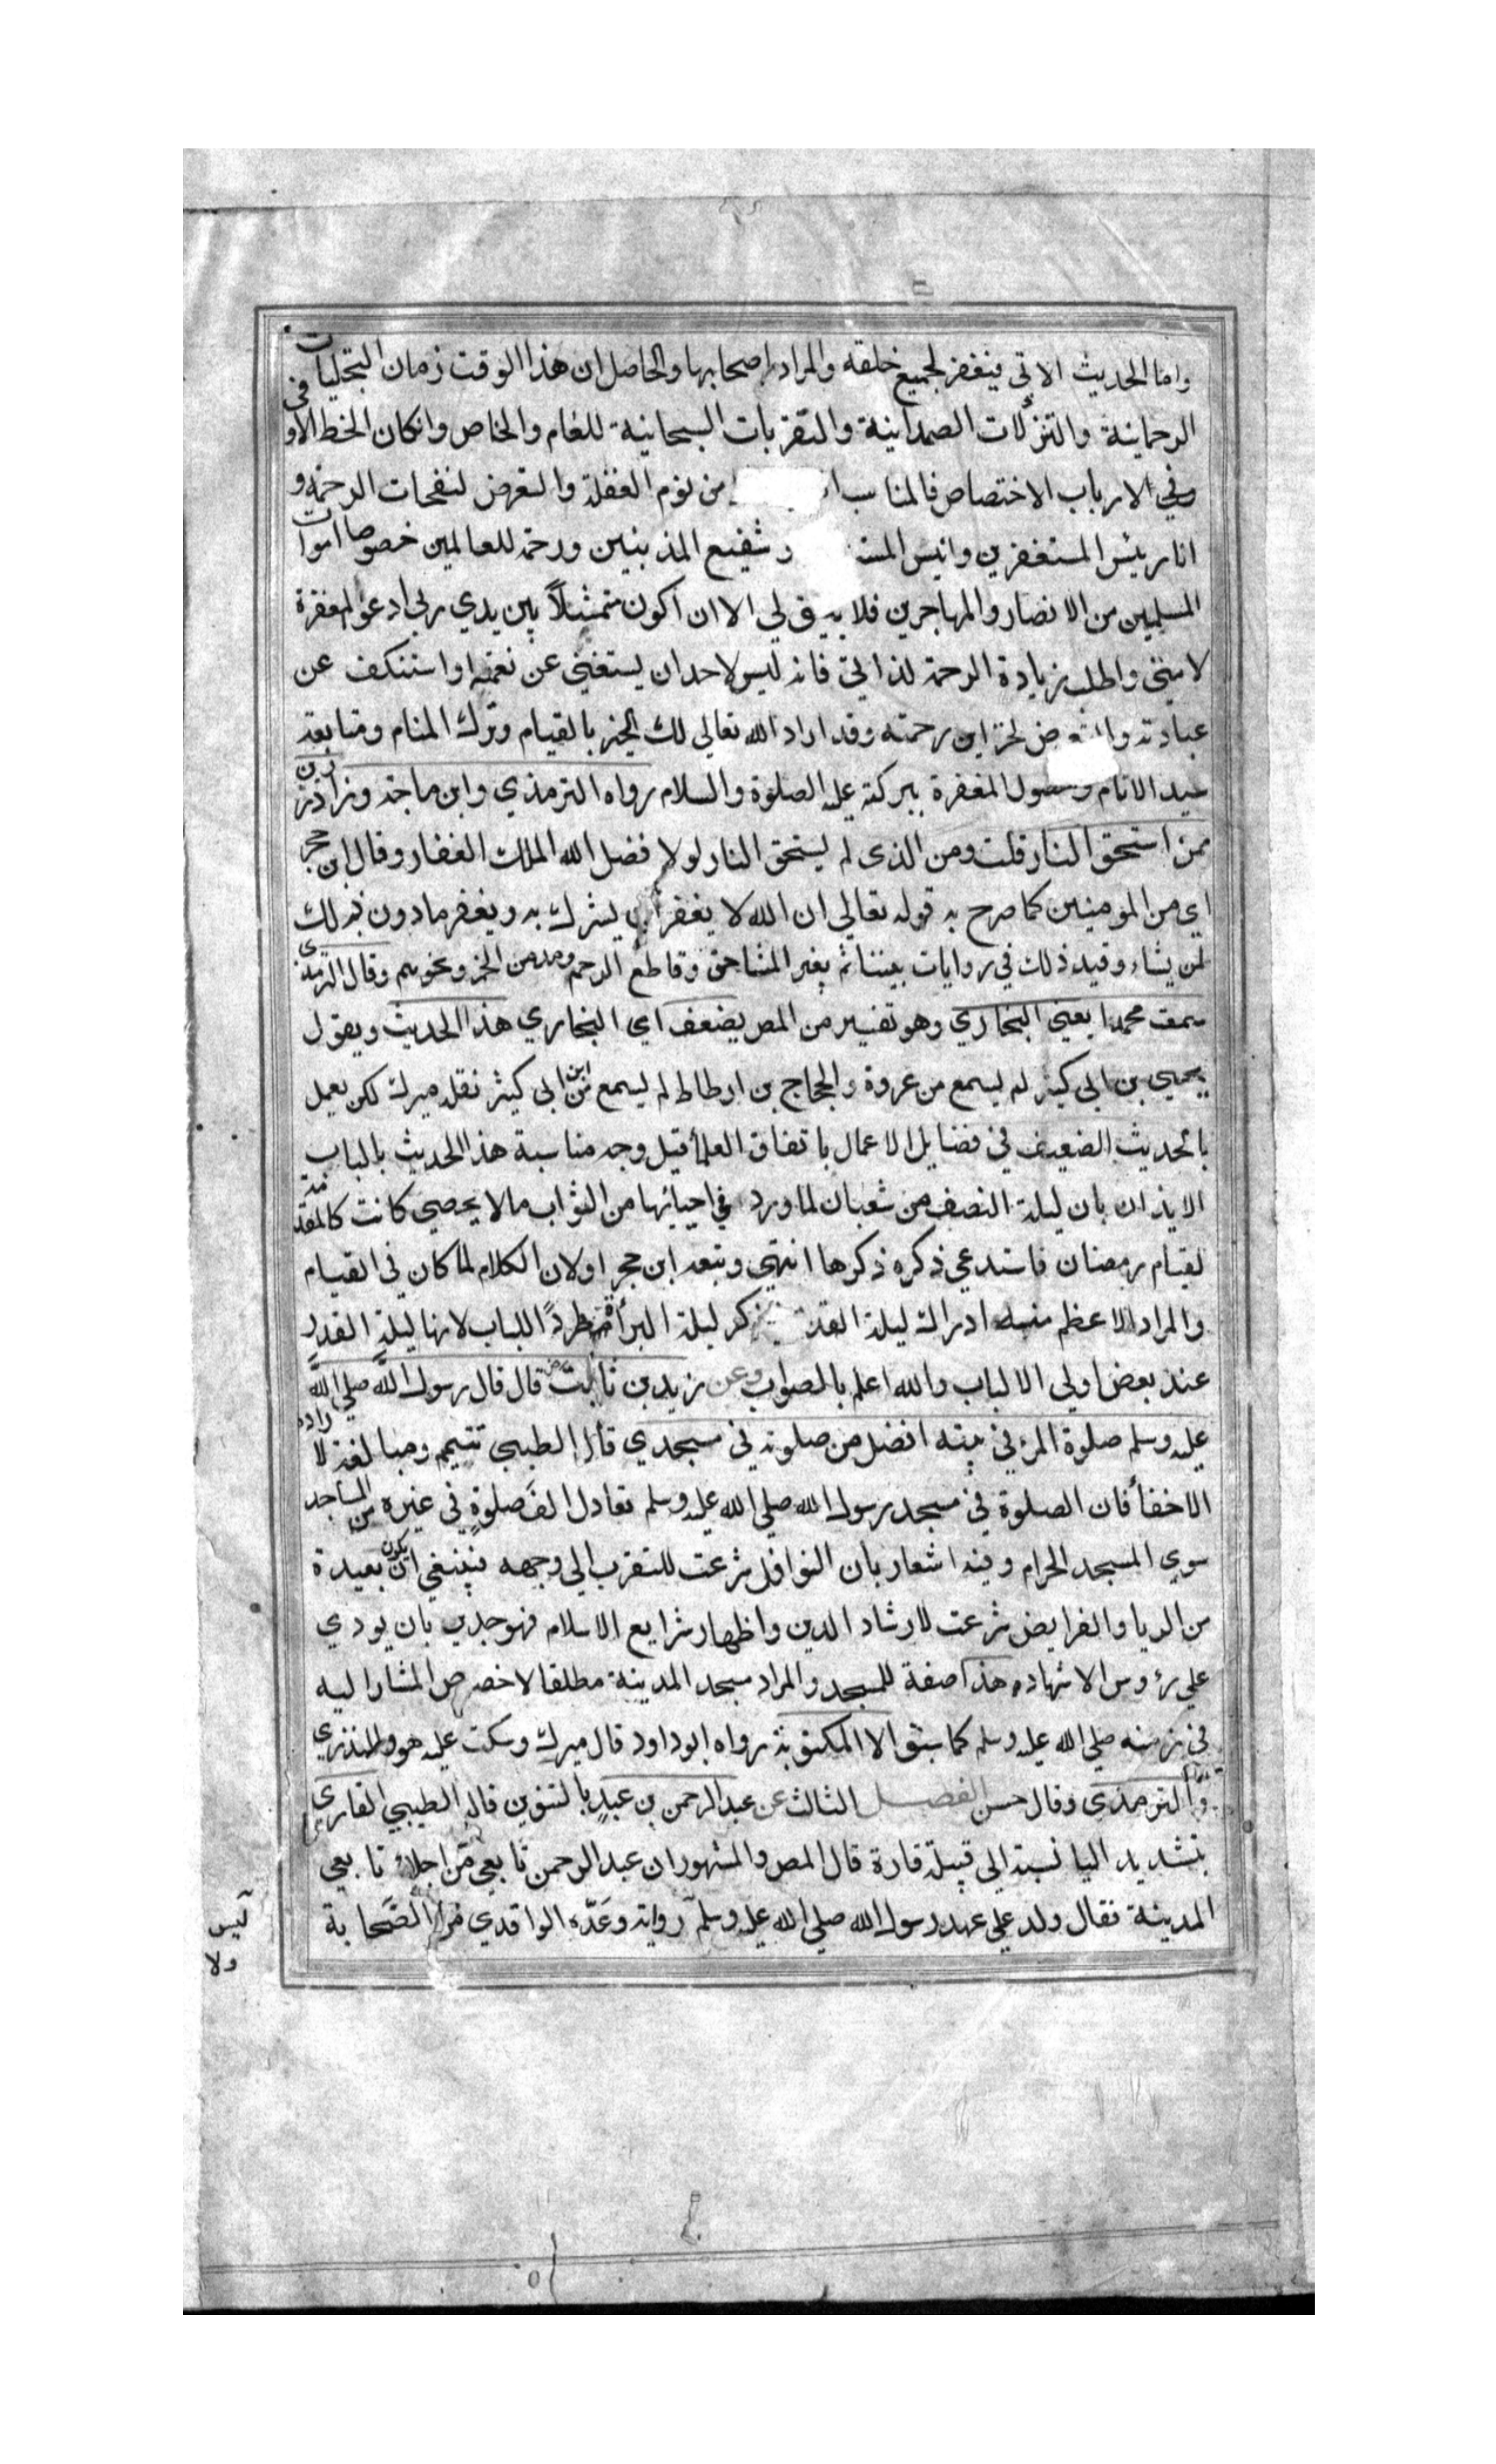 واما الحديث الاتي فيغفر لجميع خلقه والمراد اصحابها والحاصل ان هذا الوقت زمان التجليات
الرحمانية والتنزلات الصمدانية والتقربات السبحانية للعام والخاص وان كان الخط الاوفى
وفي لارباب الاختصاص فالمناسب من نوم الغفلة والتعرض لنفحات الرحمة و
انا رئيس المستغفرين وانيس شفيع المذنبين ورحمة للعالمين خصوصا اموات
المسلمين من الانصار والمهاجرين فلا يليق لي الا ان اكون متمثلاً بين يدي ربي ادعو المغفرة
لامتي واطلب زيادة الرحمة لذاتي فانه ليس لاحد ان يستغني عن نعمه او استنكف عن
عبادته والتعرض لخزاين رحمته وقد اراد الله تعالى لك الخير بالقيام وترك المنام ومتابعة
سيد الانام وحصول المغفرة ببركته عليه الصلوة والسلام رواه الترمذي وابن ماجة وزاد رزين
ممن استحق النار قلت ومن الذى لم يستحق النار لولا فضل الله الملك الغفار وقال ابن حجر
اي من المومنين كما صرح به قوله تعالى ان الله لا يغفر ان يشرك به ويغفر ما دون ذلك
لمن يشاء وقيد ذلك في روايات بينتا ثم بغير المشاحن وقاطع الرحم ومدمن الخمر ونحوهم وقال الترمذى
سمعت محمدا يعني البخاري وهو تفسير من المص يضعف اى البخاري هذا الحديث ويقول
يحيى بن ابي كثير لم يسمع من عروة والحجاج بن ارطاط لم يسمع من ابن ابي كثير نقله ميرك لكن يعمل
بالحديث الضعيف في فضايل الاعمال باتفاق العلمأ قيل وجه مناسبة هذا الحديث بالباب
الايذان بان ليلة النصف من شعبان لما ورد في احيائها من الثواب ما لا يحصي كانت كالمقدمة
لقيام رمضان فاستدعى ذكره ذكرها انتهى وتبعه ابن حجر او لان الكلام لما كان في القيام
والمراد الاعظم منه ادراك ليلة القدر ذكر ليلة البرأة طرداً للباب لانها ليلة القدر
عند بعض اولي الالباب والله اعلم بالصواب وعن زيد بن ثابت قال قال رسول الله صلى الله
عليه وسلم صلوة المرء في بيته افضل من صلوته في مسجدي قال الطيبي تتيم ومبالغة لارادة
الاخفأ فان الصلوة في مسجد رسول الله صلى الله عليه وسلم تعادل الف صلوةٍ في غيره من المساجد
سوي المسجد الحرام وفيه اشعار بان النوافل شرعت للتقرب الى وجهه فينبغي ان يكون بعيدة
من الريا والفرايض شرعت لارشاد الدين واظهار شرايع الاسلام فهو جدير بان يودي
علي رؤوس الاشهاد هذا صفة للمسجد والمراد مسجد المدينة مطلقا لا خصوص المشار اليه
في زمنه صلى الله عليه وسلم كما سبق الا المكتوبة رواه ابو داود قال ميرك وسكت عليه هو والمنذري
والترمذى وقال حسن الفصل الثالث عن عبد الرحمن بن عبدٍ بالتنوين قال الطيبي القارى
بتشديد اليا نسبة الي قبيلة قارة قال المص والمشهور ان عبد الرحمن تابعي من اجلاء تابعي
المدينة فقال ولد علي عهد رسول الله صلى الله عليه وسلم رواية وعَدّه الواقدي من الصَّحابة
ليس
ولا